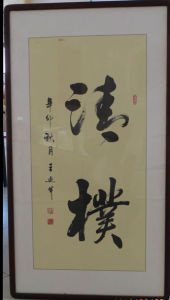 清樸
辛卯秋月